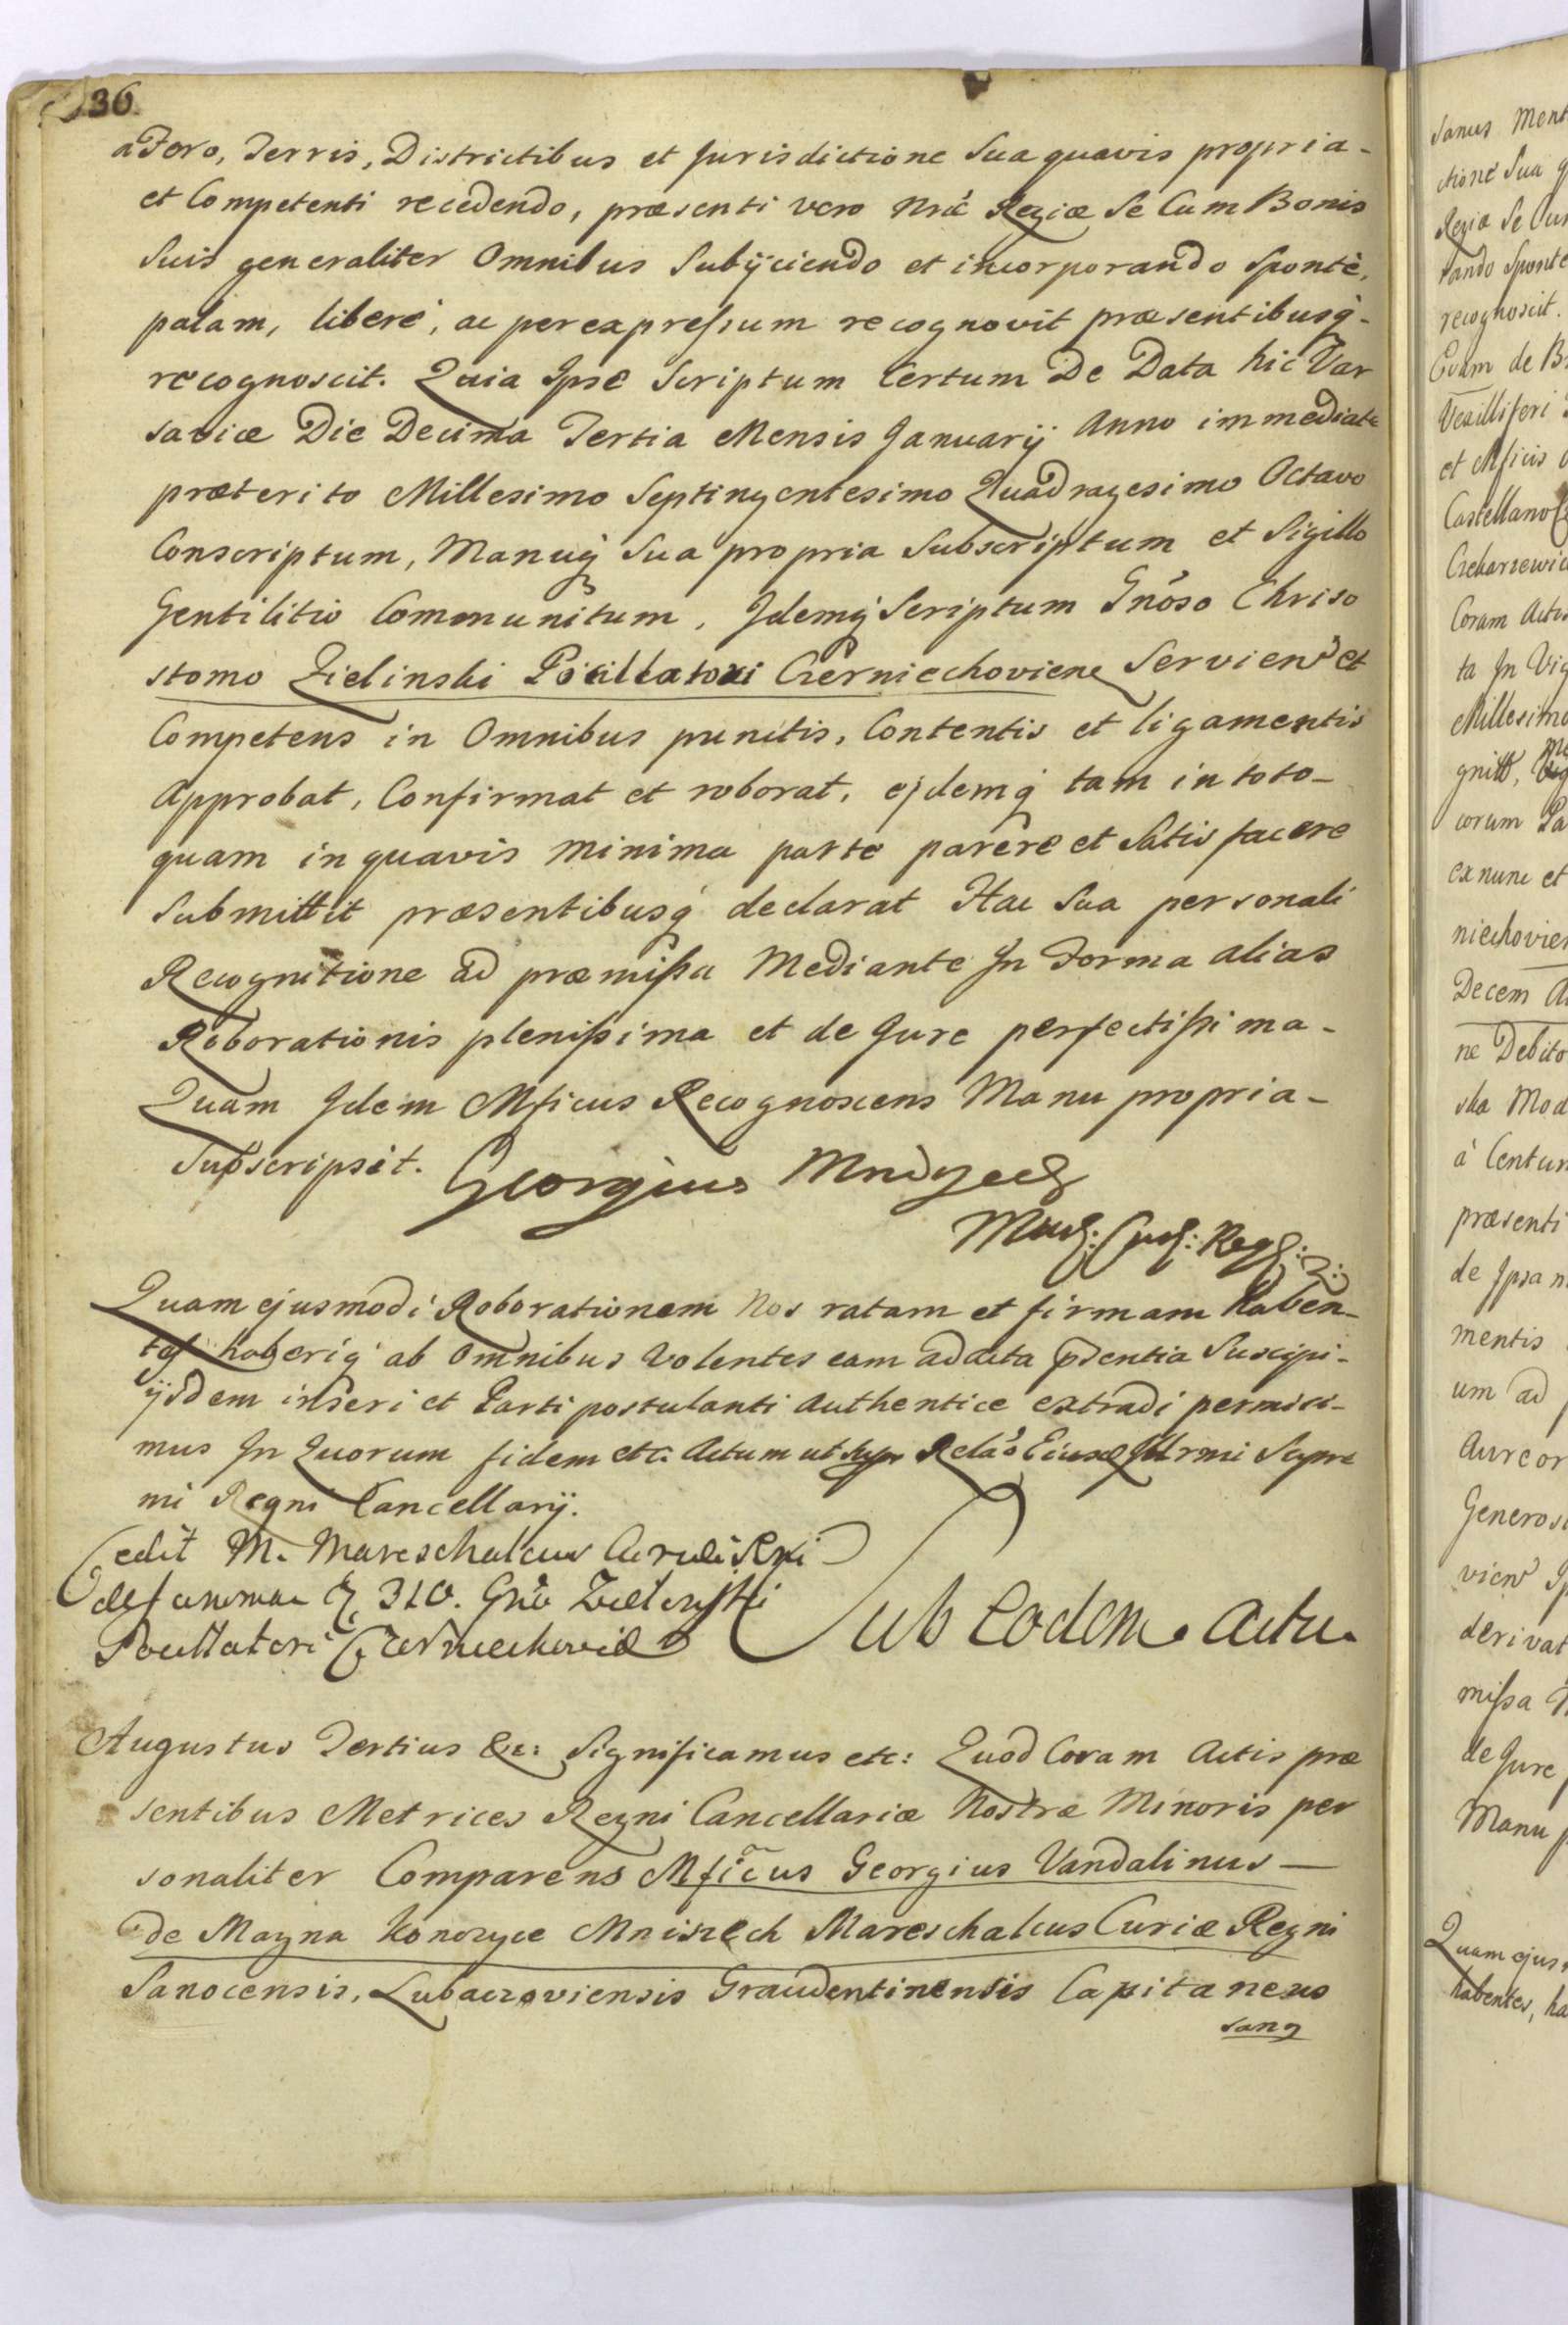 36.
a Foro, Terris, Districtibus et Jurisdictione Sua quavis propria-
et Competenti recedendo, præsenti vero Nræ Regiæ Se Cum Bonis
Suis generaliter Omnibus Subijciendo et incorporando Sponte,
palam, libere, ac per expressum recognovit præsentibusq-
recognoscit. Quia Ipse Scriptum Certum De Data hic Var
saviæ Die Decima Tertia Mensis Januarij Anno immediate
præterito Millesimo Septingentesimo Quadragesimo Octavo
Conscriptum, Manuq Sua propria Subscriptum et Sigillo
Gentilitio Communitum, Idemq Scriptum Gnõso Chriso
stomo Zielinski Pocillatori Czerniechoviens Servien et
Competens in Omnibus punctis, Contentis et ligamentis
Approbat, Confirmat et roborat, ejdemq tam in toto-
quam in quavis minima parte parere et Satisfacere
Submittit præsentibusq declarat Hac Sua personali
Recognitione ad præmissa Mediante In Forma alias
Roborationis plenissima et de Jure perfectissima-
Quam Idem Mficus Recognoscens Manu propria-
Subscripsit. Georgius Mniszech
Quam ejusmodi Roborationem Nos ratam et firmam haben-
tes haberiq ab Omnibus Volentes eam ad acta pdentia Suscipi-
ijsdem inseri et Parti postulanti authentice extradi permisi-
mus In Quorum fidem etc: Actum ut Supr Relão Ejusd Illrmi Supre
mi Regni Cancellarij.
Cedit M. Mareschalcus Curiæ Rni
de summa 310. Gño Zielinski
Pocillatori Czerniechovie
Sub Eodem Actu
Augustus Tertius &c: Significamus etc: Quod Coram Actis præ
sentibus Metrices Regni Cancellariæ Nostræ Minoris per
sonaliter Comparens Mficus Georgius Vandalinus-
de Magna Konczyce Mniszech Mareschalcus Curiæ Regni
Sanocensis, Lubaczoviensis Graudentinensis Capitaneus
sang
Sanus Ment
ctione Sua q
Regiæ Se Cum
rando Sponte
recognoscit.
de B
Vexilliferi
et Mficis
Castellano
Coram Actis
ta In Vig
Millesimo
corum Pa
ex nunc et
niechovien
Decem
ne Debito
ska Mod
à Centum
præsenti
de Ipsa n
mentis
um ad
Aureor
Generoso
vien Ip
derivat
missa
de Jure
Manu
Quam ejus
habentes, ha